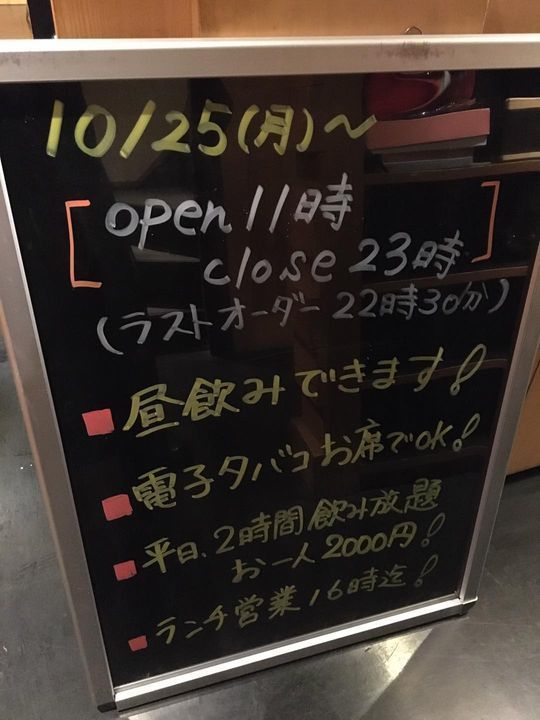 10/25(月)～
open 11時
close 23時
(ラストオーダー 22時30分)
昼飲みできます!
電子タバコお席でOK!
平日、2時間飲み放題
お一人2000円!
ランチ営業16時迄!